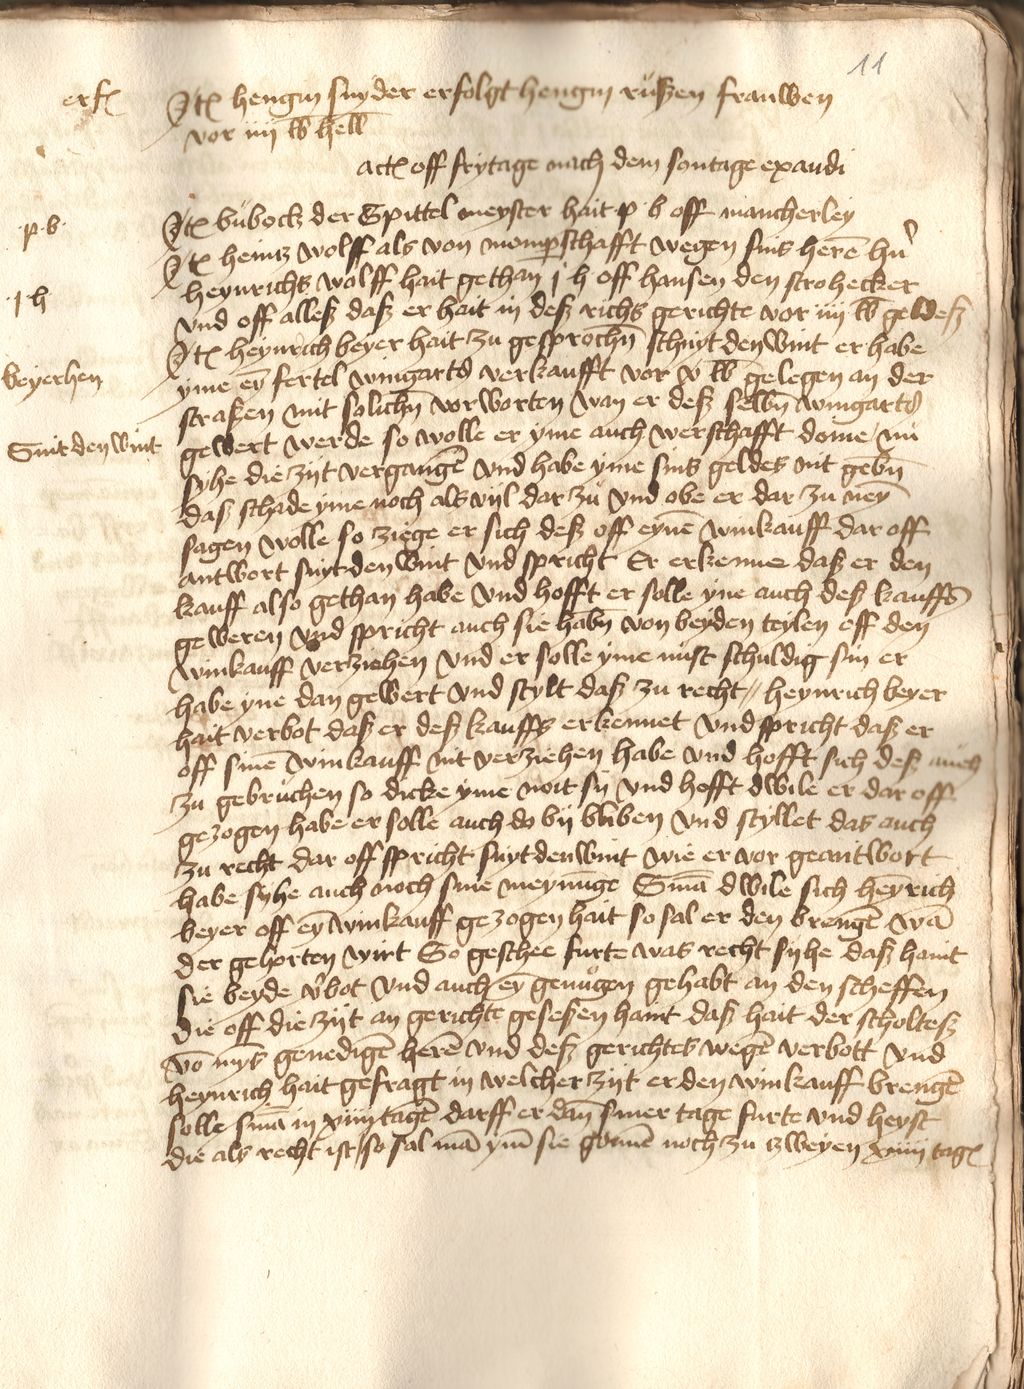 11
erf
Jt hengin snyder erfolgt hengin rußen frauwen
vor iiij lb hell
act off frytage nach dem sontage exaudi
p. b.
Jt bubock der Spittelmeyster hait p b off mancherley
Jt heintz wolff als von momperschafft wegen sins herē
heynrichs wolff hait gethan j h off hansen den strohecker
j h
vnd off alleß daß er hait in deß richs gerichte vor iiij lb geldeß
Jt heynrich beyer hait zu gesprochn̄ snyt den wint er habe
beyerhen
yme eȳ fertel wingarts verkaufft vor v lb gelegen an der
straßen mit solichn̄ vorworten wan er deß selbn̄ wingarts
Snit den wint
gewert werde so wolle er yme auch werschafft dome nu
syhe die zyt vergangē vnd habe yme sins geldes nit gebn̄
daß schade yme noch als vijl dar zu vnd obe er dar zu neȳ
sagen wolle so ziege er sich deß off eynē winkauff dar off
antwort snyt den wint vnd spricht Er erkenne daß er den
kauff also gethan habe vnd hofft er solle yne auch deß kauffs
geweren vnd spricht auch sie habn̄ von beyden teylen off den
winkauff verziehen vnd er solle yme nust schuldig sin er
habe yne dan gewert vnd stylt daß zu recht // heynrich beyer
hait verbot daß er deß kauffs erkennet vnd spricht daß er
off sinē winkauff nit verziehen habe vnd hofft sich deß auch
zu gebruchen so dicke yme noit sy vnd hofft dwile er dar off
gezogen habe er solle auch do by bliben vnd styllet das auch
zu recht dar off spricht snyt den wint wie er vor geantwort
habe syhe auch noch sine meynūge Sniā dwile sich heȳrich
beyer off eȳ winkauff gezogen hait so sal er den brengē wā
der gehorten wirt So geschee furte was recht syhe daß haint
sie beyde v̄bot vnd auch eȳ genugen gehabt an den scheffen
die off die zyt an gerichte geseßen haint daß hait der scholteß
vō myns genedigē herē vnd deß gerichtes wegē verbott vnd
heynrich hait gefragt in welcher zyt er den winkauff brengē
solle sniā in xiiij tagē darff er dan̄ siner tage furte vnd heyst
die als recht ist / so sal mā ym̄ sie gonnē noch zu zweyen xiiij tag